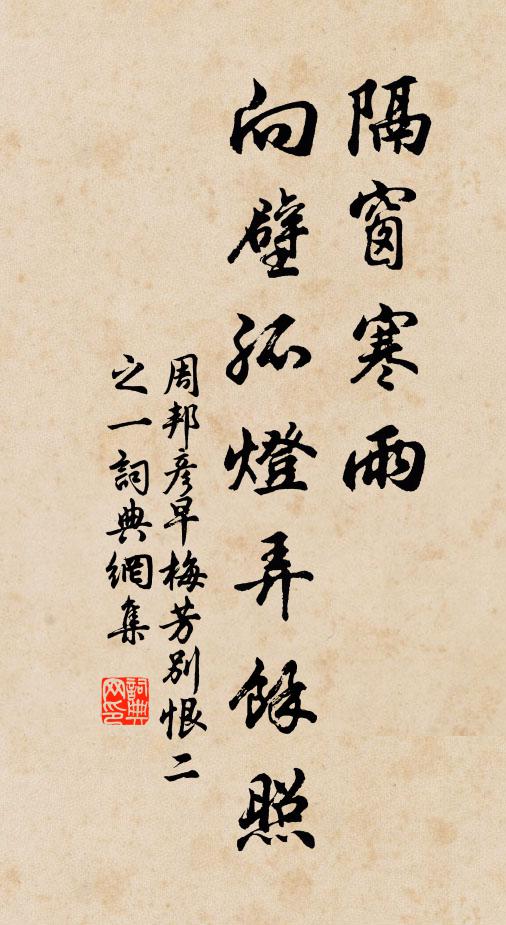 隔窗寒雨
向壁孤燈弄餘照
周邦彦早梅芳別恨二
之一詞典網集
詞典
网印